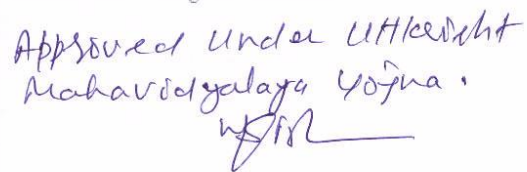 Approved under Utkrisht
Mahavidyalaya Yojna.